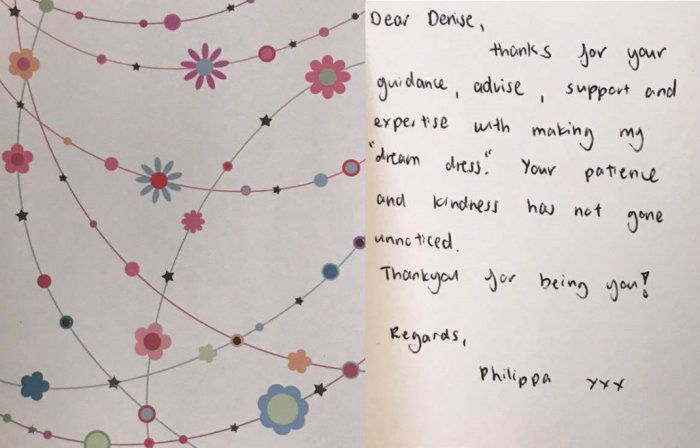 Dear Denise,
thanks for your
guidance, advise, support and
expertise with making my
"dream dress". Your patience
and kindness has not gone
unnoticed.
Thankyou for being you!
Regards,
Philippa xxx